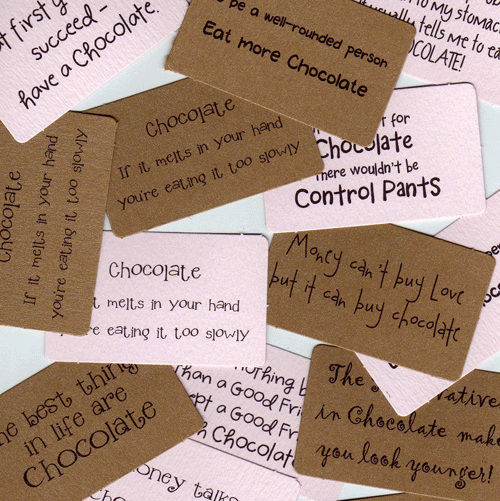 succeed-
have a Chocolate.
be a well-rounded person
Eat more Chocolate
to my stomach
tells me to eat
CHOCOLATE!
Chocolate
If it melts in your hand
you're eating it too slowly
for
Chocolate
there wouldn't be
Control Pants
Chocolate
If it melts in your hand
you're eating it too slowly
Chocolate
t melts in your hand
e eating it too slowly
Money can't buy Love
but it can buy chocolate
The best thing
in life are
Chocolate
nothing b
than a Good Fri
ept a Good Fri
Chocolat
The vative
in Chocolate make
you look younger!
oney talks